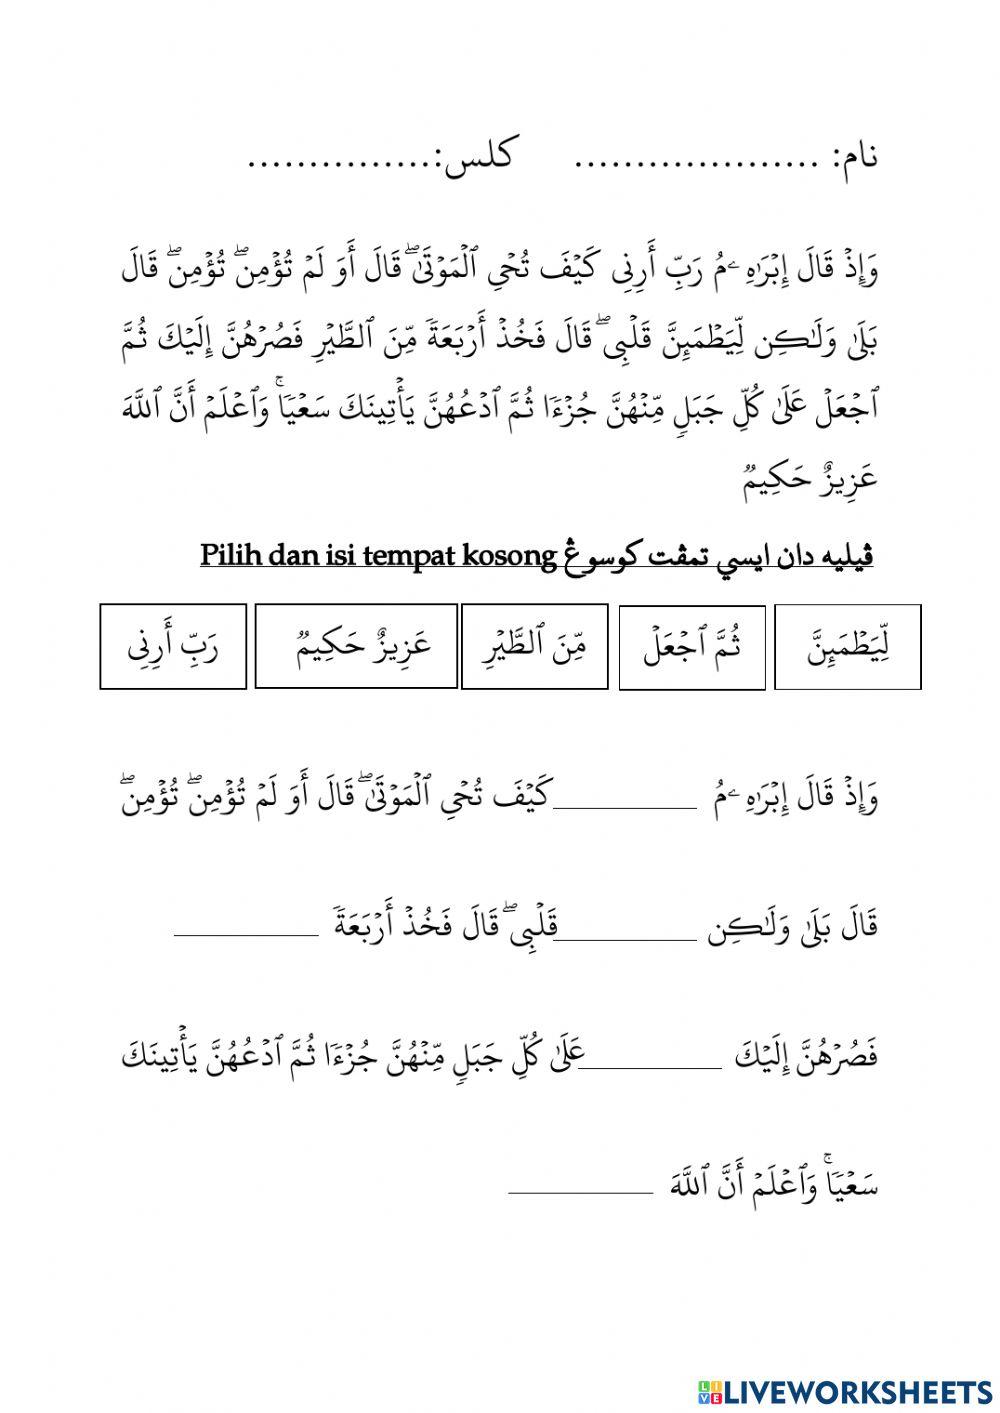 نام: .................... كلس:...............
وَإِذۡ قَالَ إِبۡرَٰهِـۧمُ رَبِّ أَرِنِي كَيۡفَ تُحۡيِ ٱلۡمَوۡتَىٰۖ قَالَ أَوَ لَمۡ تُؤۡمِنۖ تُؤۡمِنۖ قَالَ
بَلَىٰ وَلَٰكِن لِّيَطۡمَئِنَّ قَلۡبِيۖ قَالَ فَخُذۡ أَرۡبَعَةٗ مِّنَ ٱلطَّيۡرِ فَصُرۡهُنَّ إِلَيۡكَ ثُمَّ
ٱجۡعَلۡ عَلَىٰ كُلِّ جَبَلٖ مِّنۡهُنَّ جُزۡءٗا ثُمَّ ٱدۡعُهُنَّ يَأۡتِينَكَ سَعۡيٗاۚ وَٱعۡلَمۡ أَنَّ ٱللَّهَ
عَزِيزٌ حَكِيمٞ
ڤيليه دان ايسي تمڤت كوسوڠ Pilih dan isi tempat kosong
لِّيَطۡمَئِنَّ ثُمَّ ٱجۡعَلۡ مِّنَ ٱلطَّيۡرِ عَزِيزٌ حَكِيمٞ رَبِّ أَرِنِي
وَإِذۡ قَالَ إِبۡرَٰهِـۧمُ ________ كَيۡفَ تُحۡيِ ٱلۡمَوۡتَىٰۖ قَالَ أَوَ لَمۡ تُؤۡمِنۖ تُؤۡمِنۖ
قَالَ بَلَىٰ وَلَٰكِن ________ قَلۡبِيۖ قَالَ فَخُذۡ أَرۡبَعَةٗ ________
فَصُرۡهُنَّ إِلَيۡكَ ________ عَلَىٰ كُلِّ جَبَلٖ مِّنۡهُنَّ جُزۡءٗا ثُمَّ ٱدۡعُهُنَّ يَأۡتِينَكَ
سَعۡيٗاۚ وَٱعۡلَمۡ أَنَّ ٱللَّهَ ________
LIVE LIVEWORKSHEETS